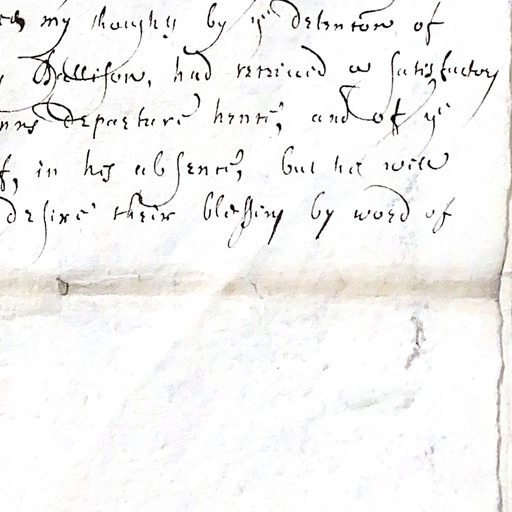 my thoughts by ye detention of
Bellison, had received a satisfactory
departure hence, and of ye
in his absence, but he will
desire their blessing by word of